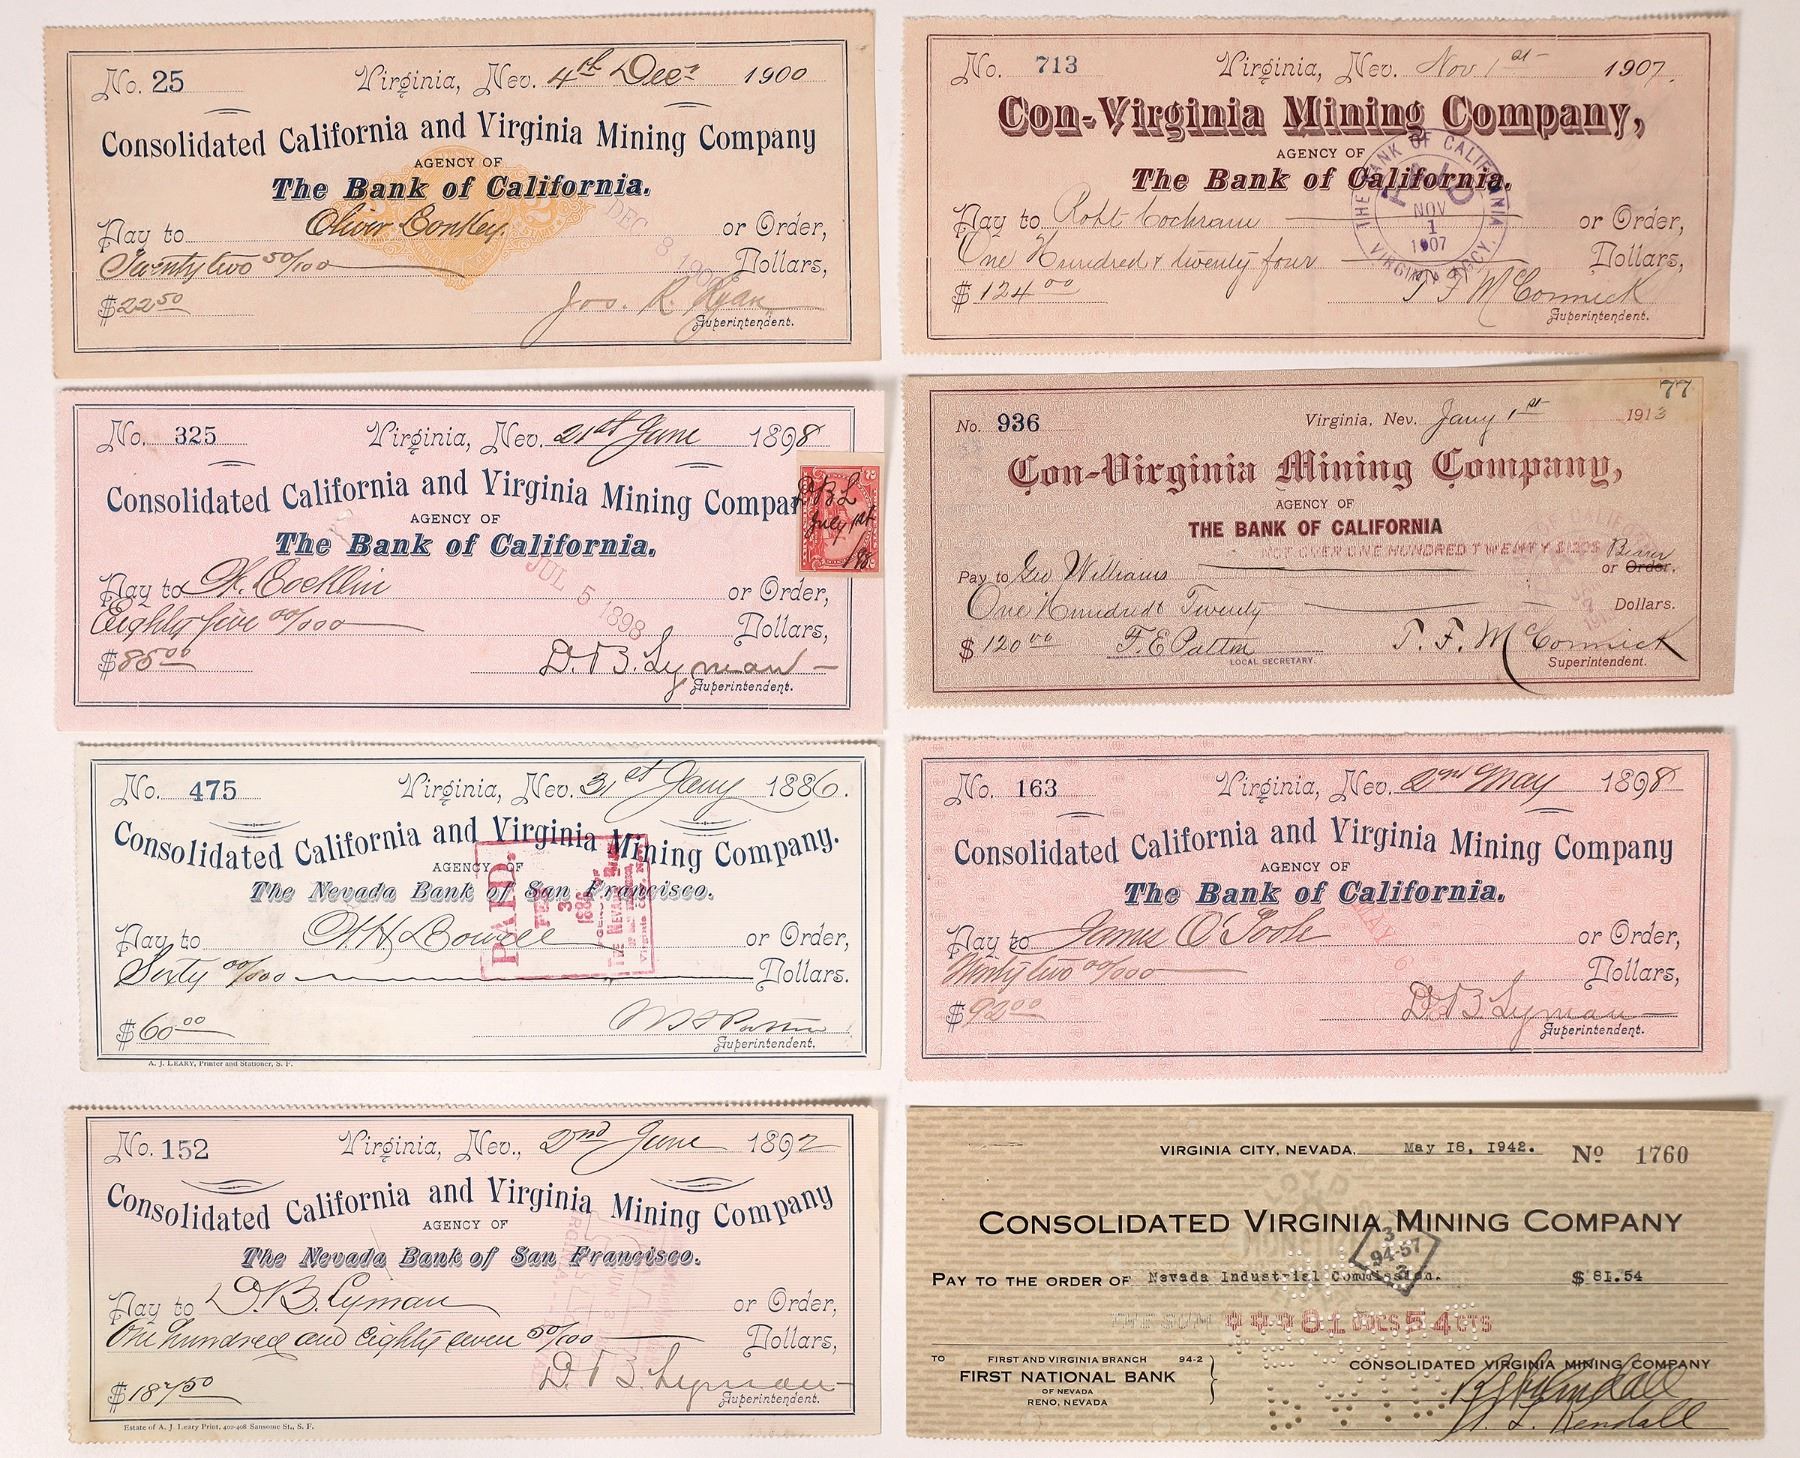 No. 25 Virginia, Nev. 4th Decr 1900
Consolidated California and Virginia Mining Company
AGENCY OF
The Bank of California.
Pay to Oliver Conkey. or Order,
Twenty two 50/100 Dollars,
$22 50 Jos. R. Ryan
Superintendent.
DEC 8 1900
No. 713 Virginia, Nev. Nov 1st 1907.
Con-Virginia Mining Company,
AGENCY OF
The Bank of California.
Pay to Robt Cochram or Order,
One Hundred & twenty four Dollars,
$124 00 T F McCormick
Superintendent.
THE BANK OF CALIFORNIA
PAID
NOV
1
1907
VIRGINIA AGCY.
No. 325 Virginia, Nev. 21st June 1898
Consolidated California and Virginia Mining Compan
AGENCY OF
The Bank of California.
Pay to H. Cocklin or Order,
Eighty five 00/100 Dollars,
$85 00 D. B. Lyman
Superintendent.
D B L
July 1st
/98
JUL 5 1898
77
No. 936 Virginia, Nev. Jany 1st 1913
Con-Virginia Mining Company,
AGENCY OF
THE BANK OF CALIFORNIA
NOT OVER ONE HUNDRED TWENTY $120$
Bearer
Pay to Geo Williams or Order.
One Hundredt Twenty Dollars.
$120 00 F. E Patton T. F. McCormick
LOCAL SECRETARY. Superintendent.
No. 475 Virginia, Nev. 31st Jany 1886.
Consolidated California and Virginia Mining Company.
AGENCY OF
The Nevada Bank of San Francisco.
Pay to or Order,
Sixty 00/100 Dollars.
$60 00 W S Patton
Superintendent,
A. J. LEARY, Printer and Stationer, S. F.
PAID.
FEB
3
1886
No. 163 Virginia, Nev. 2nd May 1898
Consolidated California and Virginia Mining Company
AGENCY OF
The Bank of California.
Pay to James O'Toole or Order,
Ninty two 00/100 Dollars,
$92 00 D. B. Lyman
Superintendent.
MAY 6
No. 152 Virginia, Nev., 2nd June 1892
Consolidated California and Virginia Mining Company
AGENCY OF
The Nevada Bank of San Francisco.
Pay to D. B. Lyman or Order,
One hundred and eighty seven 50/100 Dollars,
$187 50 D. B. Lyman
Superintendent.
Estate of A. J. Leary Print, 402-408 Sansome St., S. F.
VIRGINIA CITY, NEVADA, May 18, 1942. No 1760
CONSOLIDATED VIRGINIA MINING COMPANY
3
94-57
PAY TO THE ORDER OF Nevada Industrial Commission. $ 81.54
THE SUM 81 DOLS 54 CTS
TO FIRST AND VIRGINIA BRANCH 94-2 CONSOLIDATED VIRGINIA MINING COMPANY
FIRST NATIONAL BANK
OF NEVADA
RENO, NEVADA
Kendall
Kendall